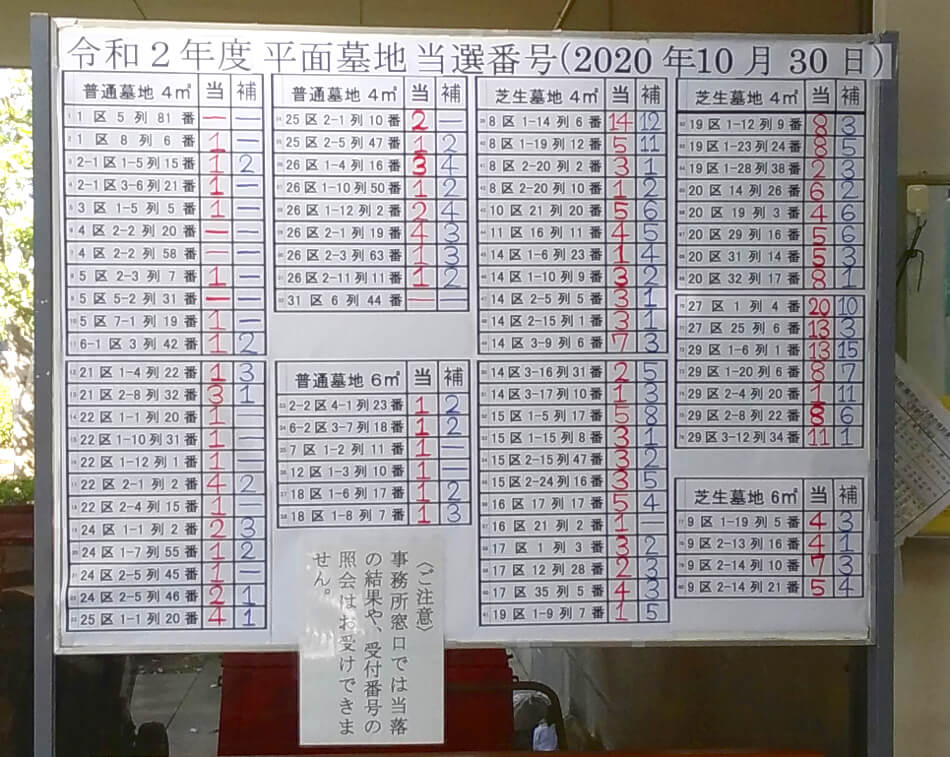 令和２年度 平面墓地 当選番号(2020 年10 月 30 日)
普通墓地 4㎡ 当 補
1 区 5 列 81 番 ― ―
1 区 8 列 6 番 1 ―
2-1 区 1-5 列 15 番 1 2
2-1 区 3-6 列 21 番 1 ―
3 区 1-5 列 5 番 1 ―
4 区 2-2 列 20 番 ― ―
4 区 2-2 列 58 番 ― ―
5 区 2-3 列 7 番 1 ―
5 区 5-2 列 31 番 ― ―
5 区 7-1 列 19 番 1 ―
6-1 区 3 列 42 番 1 2
21 区 1-4 列 22 番 1 3
21 区 2-8 列 32 番 3 1
22 区 1-1 列 20 番 1 ―
22 区 1-10 列 31 番 1 ―
22 区 1-12 列 1 番 1 ―
22 区 2-1 列 2 番 4 2
22 区 2-4 列 15 番 1 ―
24 区 1-1 列 2 番 2 3
24 区 1-7 列 55 番 1 2
24 区 2-5 列 45 番 1 ―
24 区 2-5 列 46 番 2 1
25 区 1-1 列 20 番 4 1
普通墓地 4㎡ 当 補
25 区 2-1 列 10 番 2 ―
25 区 2-5 列 47 番 1 2
26 区 1-4 列 16 番 3 4
26 区 1-10 列 50 番 1 2
26 区 1-12 列 2 番 2 4
26 区 2-1 列 19 番 4 3
26 区 2-3 列 63 番 1 3
26 区 2-11 列 11 番 1 2
31 区 6 列 44 番 ― ―
普通墓地 6㎡ 当 補
2-2 区 4-1 列 23 番 1 2
6-2 区 3-7 列 18 番 1 2
7 区 1-2 列 11 番 1 ―
12 区 1-3 列 10 番 1 ―
18 区 1-6 列 17 番 1 2
18 区 1-8 列 7 番 1 3
芝生墓地 4㎡ 当 補
8 区 1-14 列 6 番 14 12
8 区 1-19 列 12 番 5 11
8 区 2-20 列 2 番 3 1
8 区 2-20 列 10 番 1 2
10 区 21 列 20 番 5 6
11 区 16 列 11 番 4 5
14 区 1-6 列 23 番 1 4
14 区 1-10 列 9 番 3 2
14 区 2-5 列 5 番 3 1
14 区 2-15 列 1 番 3 1
14 区 3-9 列 6 番 7 3
14 区 3-16 列 31 番 2 5
14 区 3-17 列 10 番 1 3
15 区 1-5 列 17 番 5 8
15 区 1-15 列 8 番 3 1
15 区 2-15 列 47 番 3 2
15 区 2-24 列 16 番 3 5
16 区 17 列 17 番 5 4
16 区 21 列 2 番 1 ―
17 区 1 列 3 番 3 2
17 区 12 列 28 番 2 3
17 区 35 列 5 番 4 3
19 区 1-9 列 7 番 1 5
芝生墓地 4㎡ 当 補
19 区 1-12 列 9 番 8 3
19 区 1-23 列 24 番 8 5
19 区 1-28 列 38 番 2 3
20 区 14 列 26 番 6 2
20 区 19 列 3 番 4 6
20 区 29 列 16 番 5 6
20 区 31 列 14 番 5 3
20 区 32 列 17 番 8 1
27 区 1 列 4 番 20 10
27 区 25 列 6 番 13 3
29 区 1-6 列 1 番 13 15
29 区 1-20 列 6 番 8 7
29 区 2-4 列 20 番 1 11
29 区 2-8 列 22 番 8 6
29 区 3-12 列 34 番 11 1
芝生墓地 6㎡ 当 補
9 区 1-19 列 5 番 4 3
9 区 2-13 列 16 番 4 1
9 区 2-14 列 10 番 7 3
9 区 2-14 列 21 番 5 4
〈ご注意〉
事務所窓口では当落
の結果や、受付番号の
照会はお受けできま
せん。